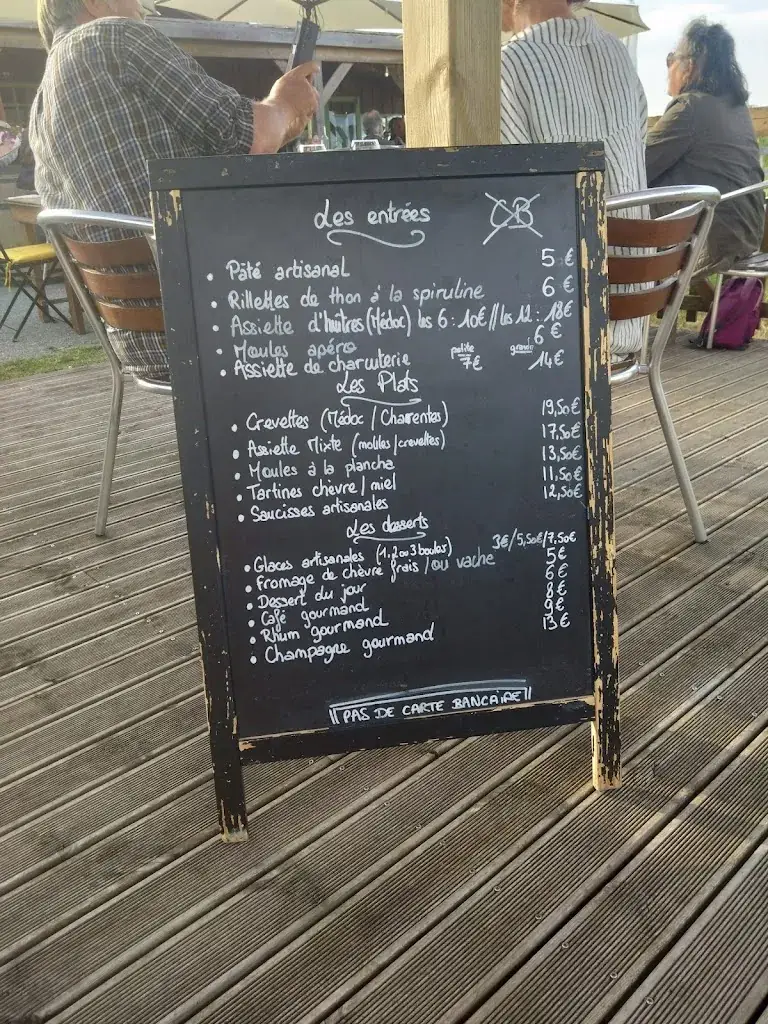 Les entrées CB
• Pâté artisanal 5 €
• Rillettes de thon à la spiruline 6 €
• Assiette d'huîtres (Médoc) les 6 : 10€ // les 12 : 18€
• Moules apéro 6 €
• Assiette de charcuterie petite 7€ grande 14€
Les Plats
• Crevettes (Médoc / Charentes) 19,50€
• Assiette Mixte (moules/crevettes) 17,50€
• Moules à la plancha 13,50€
• Tartines chèvre / miel 11,50€
• Saucisses artisanales 12,50€
Les desserts
• Glaces artisanales (1, 2 ou 3 boules) 3€/5,50€/7,50€
• Fromage de chèvre frais / ou vache 5€
• Dessert du jour 6€
• Café gourmand 8€
• Rhum gourmand 9€
• Champagne gourmand 13€
PAS DE CARTE BANCAIRE